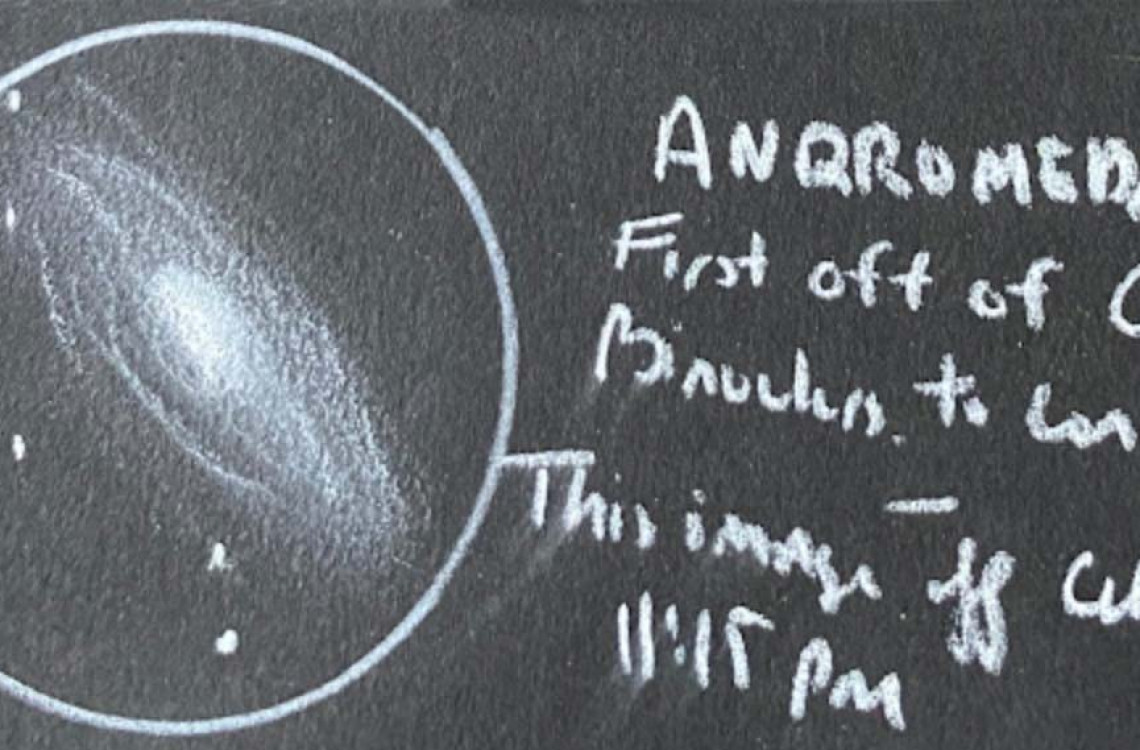 ANDROMED
First off of C
Binoculars. to
This image off
11:15 PM